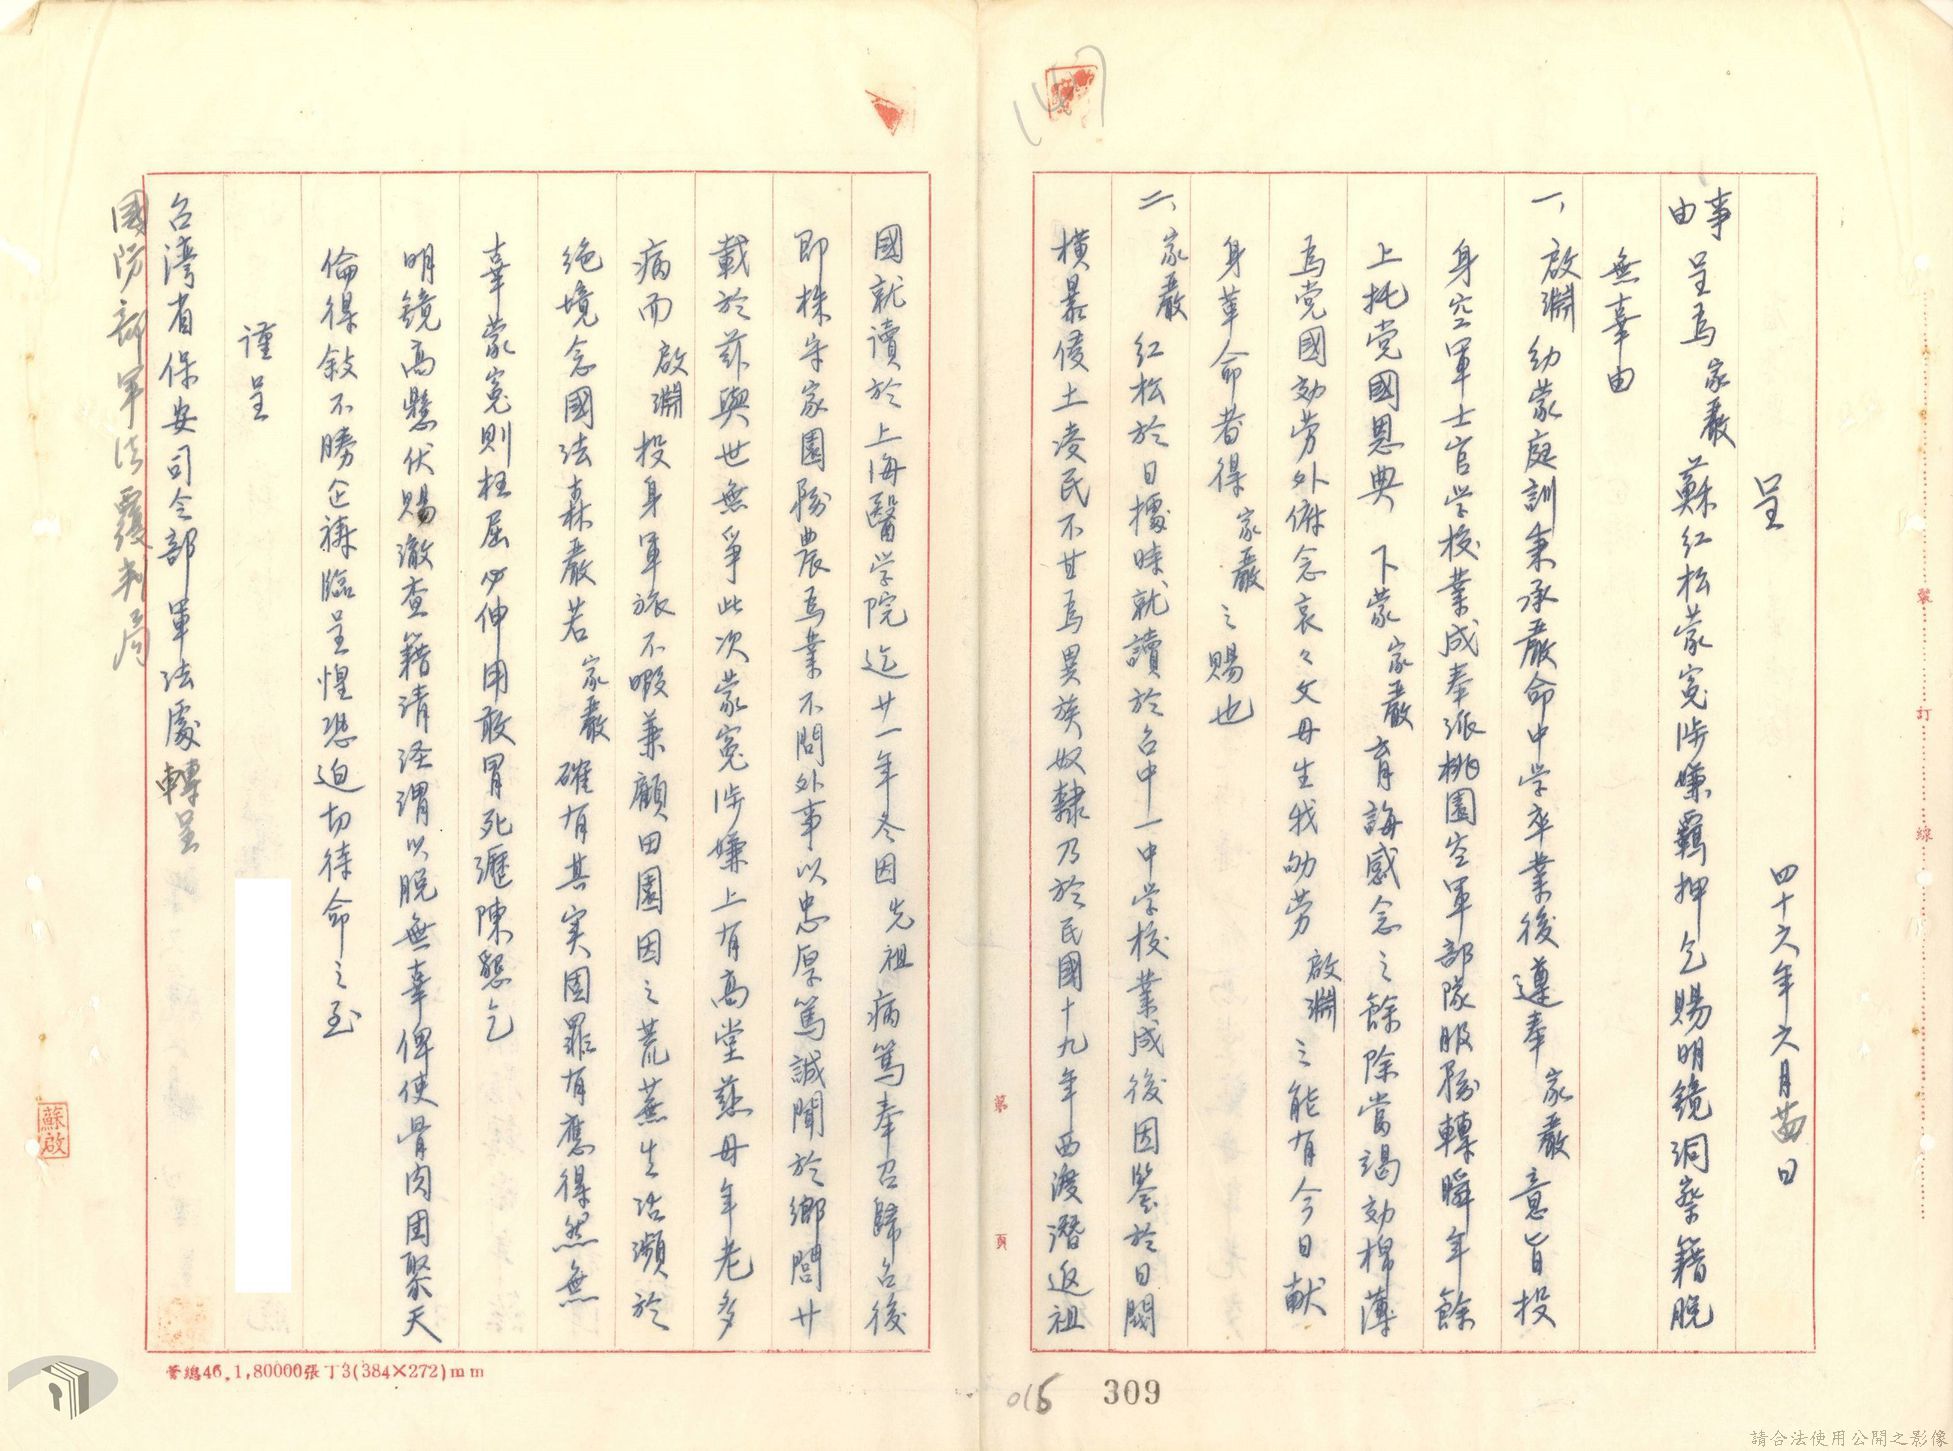 呈
四十六年六月廿四日
事由
呈為家嚴蘇紅松蒙寃涉嫌羈押乞賜明鏡洞察籍脫
無辜由
一、啟淵幼蒙庭訓秉承嚴命中学卒業後遵奉家嚴意旨投
身空軍士官学校業成奉派桃園空軍部隊服務轉瞬年餘
上托党國恩典下蒙家嚴育誨感念之餘除當竭効棉薄
為党國効劳外俯念哀々父母生我劬劳啟淵之能有今日献
身革命者得家嚴之賜也
二、家嚴紅松於日據時就讀於台中一中学校業成後因鑒於日閥
橫暴侵土凌民不甘為異族奴隸乃於民國十九年西渡潛返祖
國就讀於上海醫学院迄廿一年冬因先祖病篤奉召歸台後
即株守家園務農為業不問外事以忠厚篤誠聞於鄉閭廿
載於茲與世無爭此次蒙寃涉嫌上有高堂慈母年老多
病而啟淵投身軍旅不暇兼顧田園因之荒蕪生活瀕於
绝境念國法森嚴若家嚴確有其实固罪有應得然無
辜蒙寃則枉屈必伸用敢冒死瀝陳懇乞
明鏡高懸伏賜澈查籍清泾渭以脫無辜俾使骨肉团聚天
倫得敍不勝企禱臨呈惶恐迫切待命之至
謹呈
台湾省保安司令部軍法處轉呈
國防部軍法覆判局
蘇啟
裝
訂
線
第
頁
管總46.1,80000張丁3(384×272)mm
015
309
請合法使用公開之影像